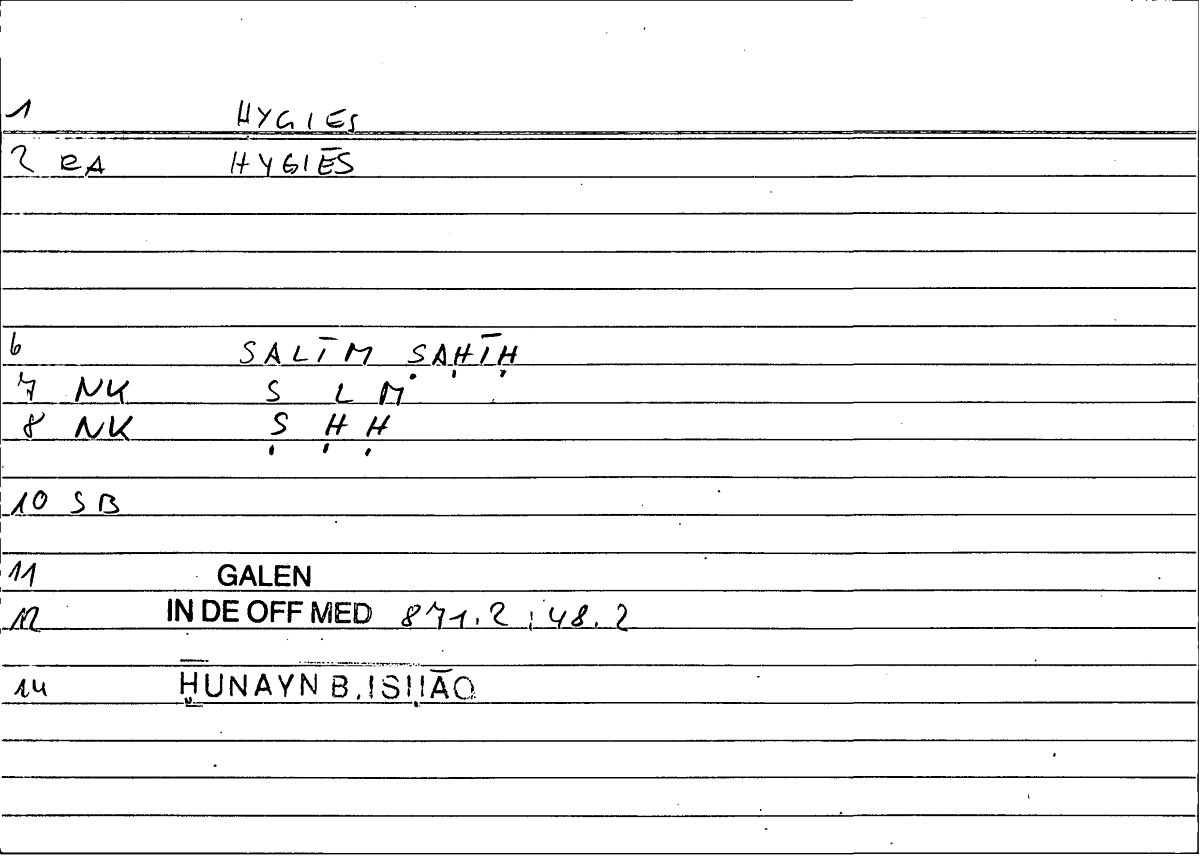 1 HYGIES
2 RA HYGIĒS
6 SALĪM ṢAḤĪḤ
7 NK S L M
8 NK Ṣ Ḥ Ḥ
10 SB
11 GALEN
12 IN DE OFF MED 871.2 ; 48.2
14 ḤUNAYN B. ISḤĀQ